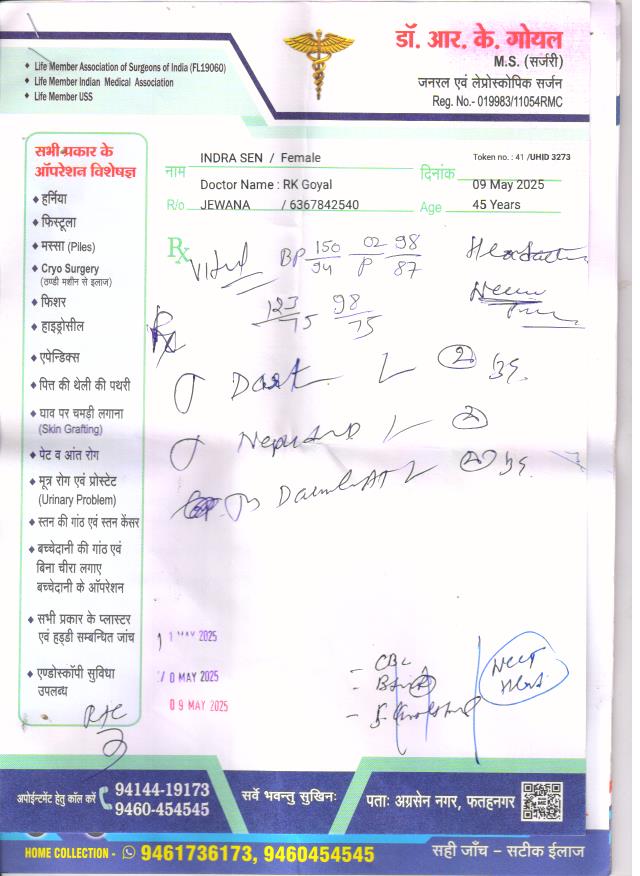 Life Member Association of Surgeons of India (FL19060)
Life Member Indian Medical Association
Life Member USS
डॉ. आर. के. गोयल
M.S. (सर्जरी)
जनरल एवं लेप्रोस्कोपिक सर्जन
Reg. No.- 019983/11054RMC
नाम INDRA SEN / Female
Token no. : 41 /UHID 3273
Doctor Name : RK Goyal
दिनांक 09 May 2025
R/o JEWANA / 6367842540
Age 45 Years
सभी प्रकार के
ऑपरेशन विशेषज्ञ
हर्निया
फिस्टूला
मस्सा (Piles)
Cryo Surgery
(ठण्डी मशीन से इलाज)
फिशर
हाइड्रोसील
एपेन्डिक्स
पित्त की थैली की पथरी
घाव पर चमड़ी लगाना
(Skin Grafting)
पेट व आंत रोग
मूत्र रोग एवं प्रोस्टेट
(Urinary Problem)
स्तन की गांठ एवं स्तन कैंसर
बच्चेदानी की गांठ एवं
बिना चीरा लगाए
बच्चेदानी के ऑपरेशन
सभी प्रकार के प्लास्टर
एवं हड्डी सम्बन्धित जांच
एण्डोस्कॉपी सुविधा
उपलब्ध
Rx
BP 150/94 P 98/87
123/75 98/75
Rx
1 MAY 2025
0 MAY 2025
09 MAY 2025
- CBC
अपोईन्टमेंट हेतु कॉल करें
94144-19173
9460-454545
सर्वे भवन्तु सुखिनः
पताः अग्रसेन नगर, फतहनगर
HOME COLLECTION - 9461736173, 9460454545
सही जाँच – सटीक ईलाज